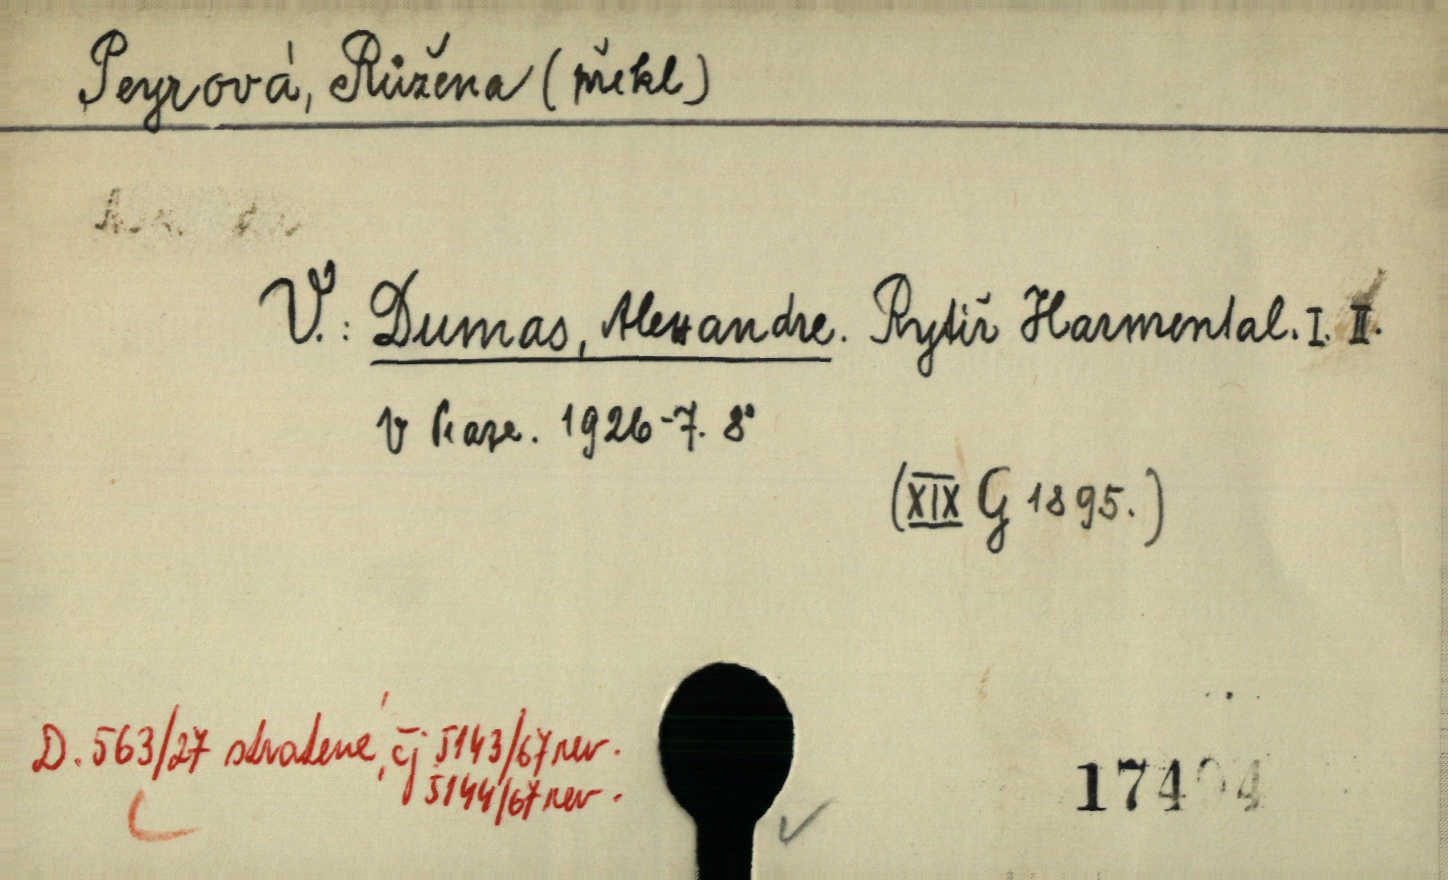 Peyrová, Růžena (překl)
V.: Dumas, Alexandre. Rytíř Harmental. I. II.
V Praze. 1926-7. 8°
(XIX G 1895.)
D. 563/27 stratené, čj 5143/67 rev.
5144/67 rev.
174